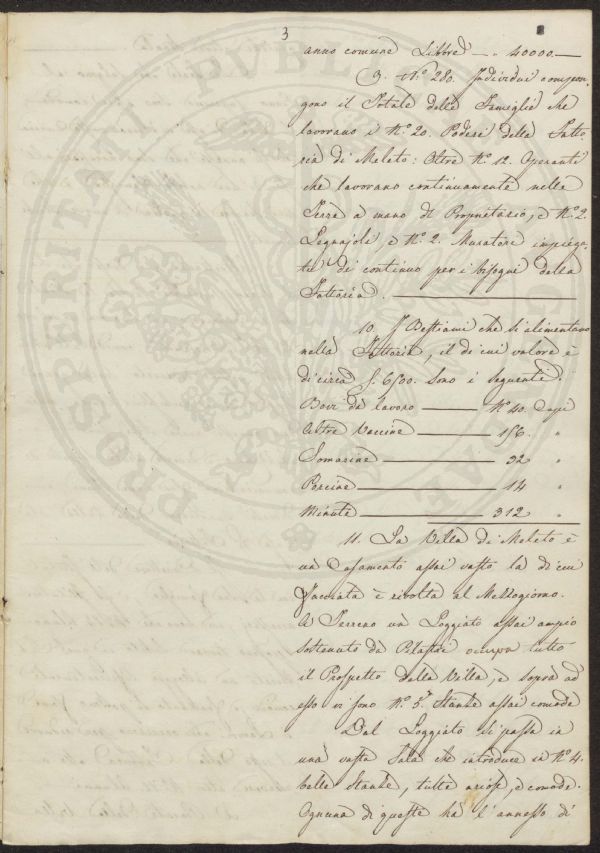 3
anno comune Libbre — „ 40000. —
9. N.° 280. Individui compon-
gono il Totale delle Famiglie che
lavorano i N.° 20. Poderi della Fatto
ria di Meleto: Oltre N.° 12. Operanti
che lavorano continuamente nelle
Terre a mano di Proprietario, e N.° 2.
Legnajoli e N.° 2. Muratori impiega-
ti di continuo per i bisogni della
Fattoria. —
10. I Bestiami che si alimentano
nella Fattoria, il di cui valore è
di circa f. 6500. sono i seguenti.
Bovi da lavoro — N.° 40. Capi
Altre Vaccine — 156. „
Somarine — 32 „
Porcine — 14 „
Minute — 312 „
11. La Villa di Meleto è
un Casamento assai vasto la di cui
Facciata è rivolta al Mezzogiorno.
A Terreno un Loggiato assai ampio
sostenuto da Pilastri occupa tutto
il Prospetto della Villa, e sopra ad
esso vi sono N.° 5. Stanze assai comode
Dal Loggiato si passa in
una vasta Sala che introduce in N.° 4.
belle Stanze, tutte ariose, e comode.
Ognuna di queste ha l'annesso di
PROSPERITATI PUBLICAE